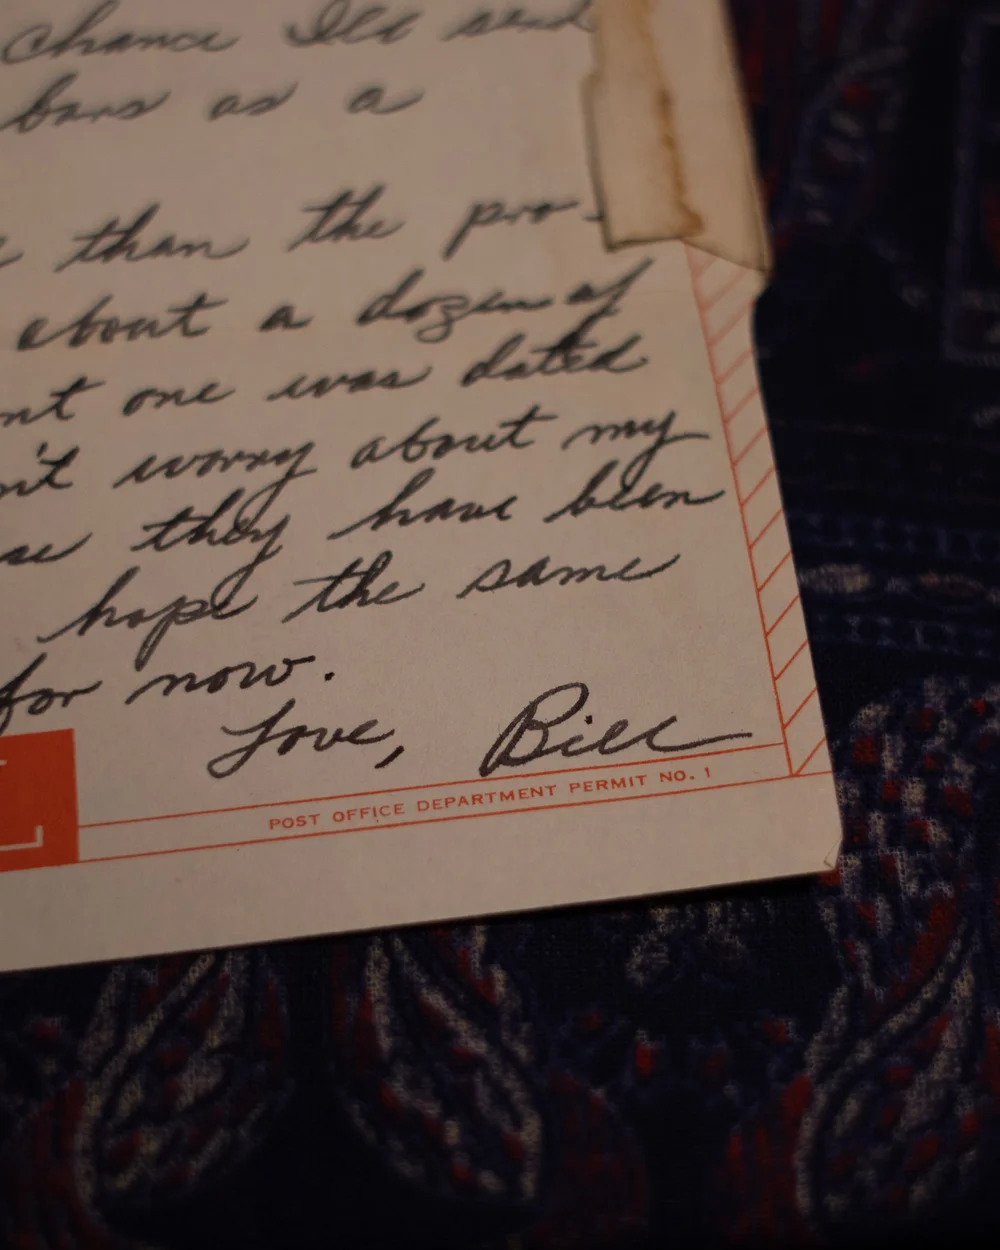 chance I'll send
bars as a
than the pro-
about a dozen of
nt one was dated
n't worry about my
se they have been
hope the same
for now.
Love, Bill
POST OFFICE DEPARTMENT PERMIT NO. 1
L